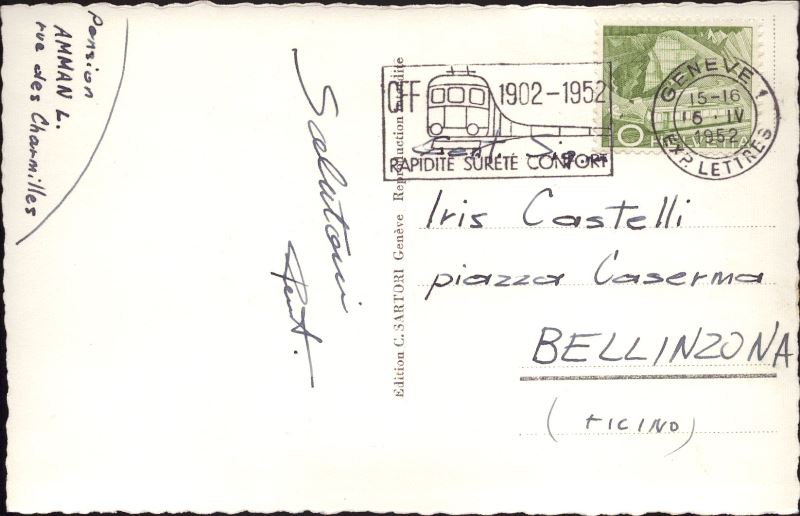 Pension
AMMAN L.
rue des Charmilles
Salutoni
Edition C. SARTORI Genève Reproduction interdite
CFF 1902-1952
RAPIDITÉ SÛRETÉ CONFORT
GENÈVE 1
15-16
6.IV
1952
EXP. LETTRES
Gent. Sig.na
Iris Castelli
piazza Caserma
BELLINZONA
(TICINO)